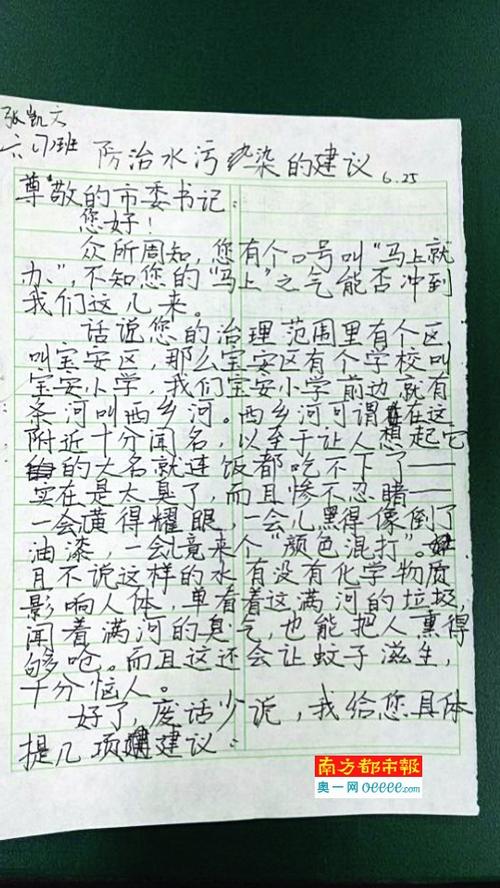 张凱六
六(7)班
防治水污染的建议
6.25
尊敬的市委书记:
您好!
众所周知,您有个口号叫“马上就
办”,不知您的“马上”之气能否冲到
我们这儿来。
话说您的治理范围里有个区
叫宝安区,那么宝安区有个学校叫
宝安小学,我们宝安小学前边就有
条河叫西乡河。西乡河可谓在这
附近十分闻名,以至于让人想起它
的大名就连饭都吃不下了——
实在是太臭了,而且惨不忍睹——
一会儿黄得耀眼,一会儿黑得像倒了
油漆,一会儿竟来个“颜色混打”。
且不说这样的水有没有化学物质
影响人体,单看着这满河的垃圾,
闻着满河的臭气,也能把人熏得
够呛。而且这还会让蚊子滋生,
十分恼人。
好了,废话少说,我给您具体
提几项建议:
南方都市報
奥一网 oeeee.com